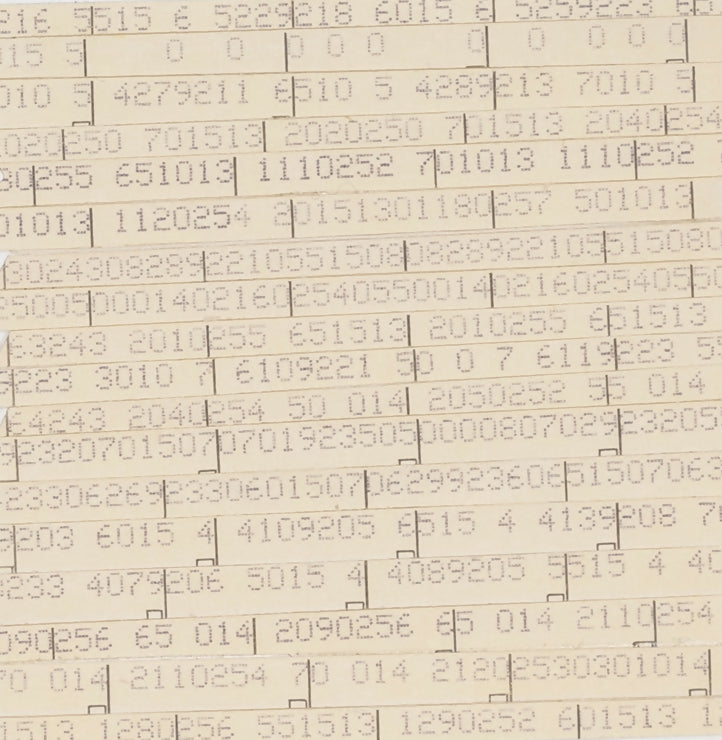 216 5515 6 5229218 6015 6 5259223 6
015 5 0 0 0 0 0 0 0 0 0 0
010 5 4279211 6510 5 4289213 7010 5
020250 701513 2020250 701513 2040254
30255 651013 1110252 701013 1110252
01013 1120254 201513011 80257 501013
302430828922105515080828922105515080
25005000014021602540550014021602540550
63243 2010255 651513 2010255 651513
6223 3010 7 6109221 50 0 7 6119223 55
64243 2040254 50 014 2050252 55 014
923207015070701923505000080702923205
233062692330601507062992360651507063
9203 6015 4 4109205 6515 4 4139208 7
233 4079206 5015 4 4089205 5515 4 40
090256 65 014 2090256 65 014 2110254
70 014 2110254 70 014 21202530301014
1513 1280256 551513 1290252 601513 1